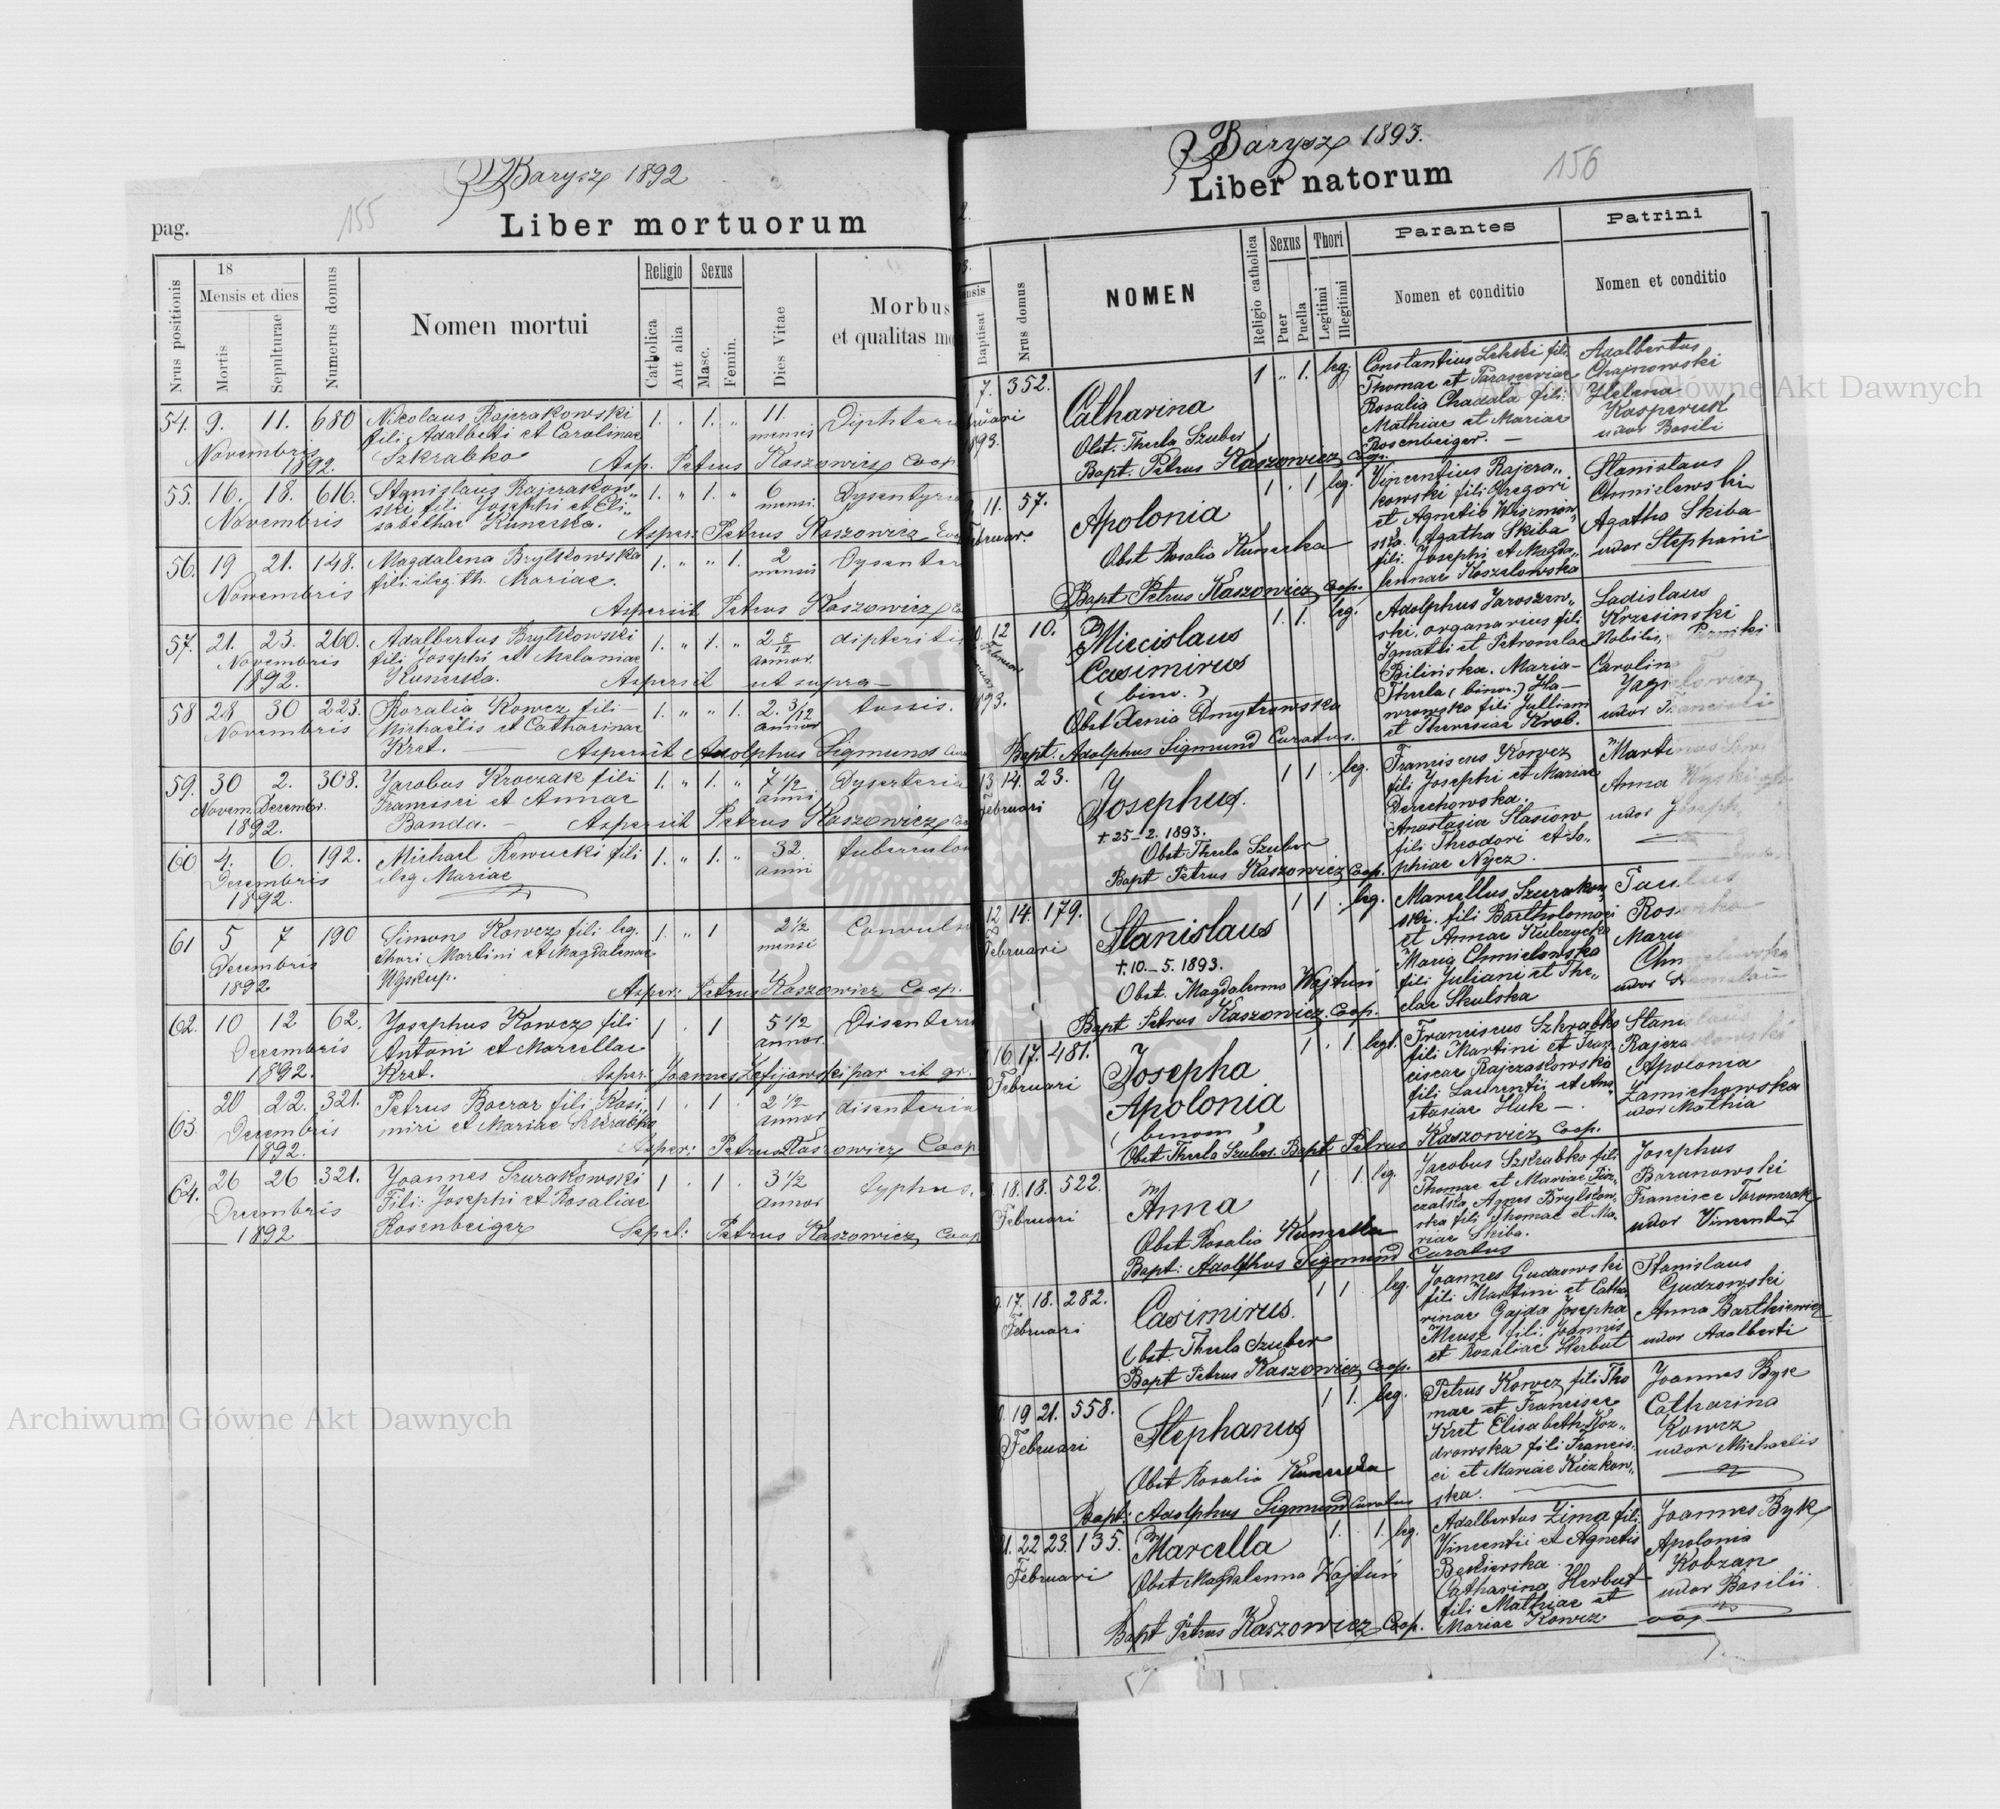 Barysz 1892
155
pag.
Liber mortuorum
Nrus positionis
18
Mensis et dies
Mortis
Sepulturae
Numerus domus
Nomen mortui
Religio
Catholica
Aut alia
Sexus
Masc.
Femin.
Dies Vitae
Morbus
et qualitas
54. 9. 11. 680 Nicolaus Rajzrakowski 1. 1. 11. Diphteri
fili Adalberti et Carolinae mensis
Novembris Szkrabko
1892. Asp. Petrus Kaszowicz Coop.
55. 16. 18. 616. Stanislaus Rajzrakow„ 1. " 1. " 6 Dysentyri
ski fili Josephi et Eli„ mensi.
Novembris sabethae Kunerska.
Asper: Petrus Kaszowicz
56. 19 21. 148. Magdalena Brylkowska 1. " " 1. 2 Dysenter
fili ileg. th. Mariae. mensis
Novembris
Aspersit Petrus Kaszowicz
57. 21. 23. 260. Adalbertus Brytkowski 1. " 1. " 2 5/12 dipterites
Novembris fili Josephi et Melaniae annor.
1892. Kunerska. Aspersit ut supra
58 28 30 223. Rozalia Kowcz fili 1. " " 1. 2. 3/12 tussis.
Novembris Michaelis et Catharinae annor
Kret. Aspersit Adolphus Sigmund
59. 30 2. 308. Jacobus Kroczak fili 1. " 1. " 7 1/2 Dysenteria
Novem. Decembr. Francisci et Annae anni
1892. Banda. Aspersit Petrus Kaszowicz
60 4. 6. 192. Michael Rewucki fili 1. " 1. " 32 tuberculo
Decembris ileg Mariae anni
1892.
61 5 7 190 Simon Kowcz fili leg. 1. " 1 2 1/2 Convuls
Decembris thori Martini et Magdalenae mensi
1892 Wyskup.
Asper: Petrus Kaszowicz Coop.
62. 10 12 62. Josephus Kowcz fili 1 1 5 1/2 Disenteri
Decembris Antoni et Marcellae annor.
1892. Kret. Asper: Joannes par rit gr.
63. 20 22. 321. Petrus fili Kasi„ 1 1 2 1/2 disenteria
Decembris miri et Mariae Szkrabko annor
1892. Asper: Petrus Kaszowicz Coop
64. 26 26 321. Joannes Szurakowski 1 1 3 1/2 typhus.
Decembris Fili: Josephi et Rosaliae annor
1892 Rosenbeiger Sepel: Petrus Kaszowicz Coop
Barysz 1893.
156
Liber natorum
Baptisat
Nrus domus
NOMEN
Religio catholica
Sexus
Puer
Puella
Thori
Legitimi
Illegitimi
Parantes
Nomen et conditio
Patrini
Nomen et conditio
7. 352. Catharina 1 " 1. leg.
Obst. Thecla Szuber
Bapt. Petrus Kaszowicz Coop.
Constantius fili
Thomae et Parasceviae
Rosalia Chadala fili
Mathiae et Mariae
Rosenbeiger.
Adalbertus
Chajnowski
Helena
Kasperuk
uxor Basili
11. 57. Apolonia 1 . 1 leg.
Februar.
Obst Rosalia Kunerska
Bapt Petrus Kaszowicz Coop.
Vincentius Rajzra„
kowski fili Gregori
et Agnetis Wiszniow„
ska. Agatha Skiba
fili Josephi et Magda„
lennae Koszelowska
Stanislaus
Chmielewski
Agatha Skiba
uxor Stephani
12 10. Miecislaus 1. 1. leg.
Casimirus
(binv.)
Obst Xenia Dmytrowska
Bapt: Adolphus Sigmund Curatus.
Adolphus Jaroszew„
ski, organarius fili
Ignatii et Petronelae
Bilińska. Maria
Thecla (binom.) Ha
wrowska fili Julliani
et Theresiae Krol.
Ladislaus
Krzesinski
Nobilis,
Carolin
uxor
13 14. 23. Josephus. 1 1 . leg.
Februari
† 25-2. 1893.
Obst Thecla Szuber
Bapt Petrus Kaszowicz Coop.
Franciscus Kowcz
fili Josephi et Mariae
Derechowska.
Anastasia Stasiow
fili Theodori et So„
phiae Nycz.
Martinus
Anna
uxor Joseph
12 14. 179. Stanislaus 1 1 . leg.
Februari
†.10.-5.1893.
Obst. Magdalenna Wojtuń
Bapt Petrus Kaszowicz Coop.
Marcellus Szurakow„
ski. fili Bartholomaei
et Annae Kulczycka
Maria Chmielowska
fili Juliani et The„
clae Skulska
Paulus
uxor
16 17. 481. Josepha 1 . 1 legt.
Februari Apolonia
(binom)
Obst Thecla Szuber. Bapt Petrus Kaszowicz Coop.
Franciscus Szkrabko
fili Martini et Fran„
ciscae Rajzrakowska
fili Laurentii et Ana„
stasiae Huk
Apolonia
Zamichowska
uxor Mathia
18. 18. 522. Anna 1 . 1. leg.
Februari
Obst Rosalia Kunerska
Bapt: Adolphus Sigmund Curatus
Jacobus Szkrabko fili
Thomae et Mariae
Agnes Brylkow„
ska fili Thomae et Ma„
riae Skiba.
Josephus
Baranowski
uxor Vincentii
17. 18. 282. Casimirus. 1 1 . leg.
Februari
Obst. Thecla Szuber
Bapt Petrus Kaszowicz Coop.
Joannes Gudzowski
fili Martini et Catha
rinae Gajda Josepha
fili: Joannis
et Rozaliae Herbut
Stanislaus
Gudzowski
Anna Bartkiewicz
uxor Adalberti
19 21. 558. Stephanus 1 1. leg.
Februari
Obst Rosalia Kunerska
Bapt: Adolphus Sigmund Curatus
Petrus Kowcz fili Tho
mae et Francisce
Kret Elisabeth Koz„
drowska fili Francis„
ci et Mariae Kiczkow„
ska.
Joannes Byk
Catharina
Kowcz
uxor Michaelis
21. 22 23. 135. Marcella 1. . 1. leg.
Februari
Obst Magdalenna Wojtuń
Bapt Petrus Kaszowicz Coop.
Adalbertus Zima fili
Vincentii et Agnetis
Catharina Herbut
fili Mathiae et
Mariae Kowcz
Joannes Byk
Apolonia
Kobzan
uxor Basilii
Archiwum Główne Akt Dawnych
Archiwum Główne Akt Dawnych